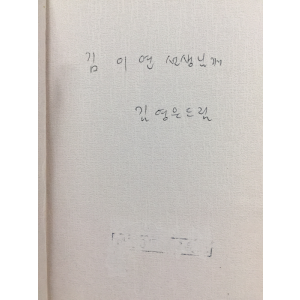 김 이연 선생님께
김영은 드림